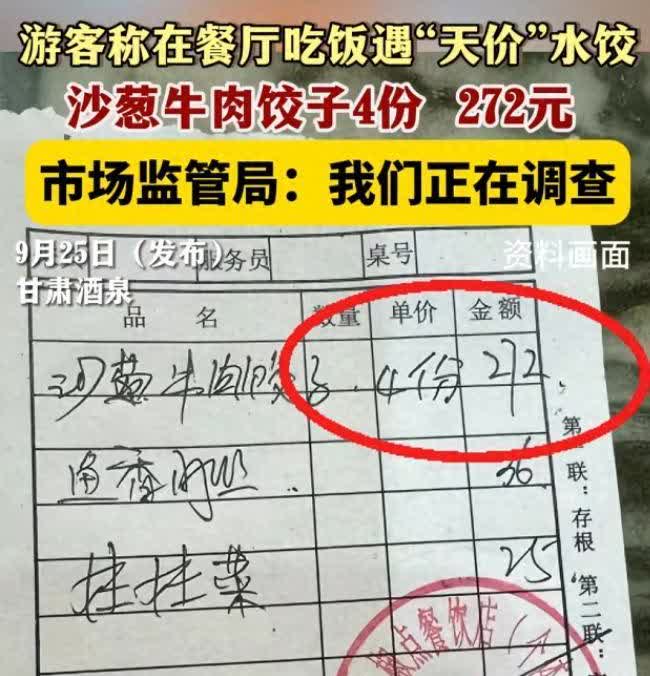 游客称在餐厅吃饭遇“天价”水饺
沙葱牛肉饺子4份 272元
市场监管局：我们正在调查
9月25日（发布）
甘肃酒泉
资料画面
服务员 桌号
品名 数量 单价 金额
沙葱牛肉饺子 4份 272
鱼香肉丝 36
挂挂菜 25
第一联：存根 第二联：
餐饮店